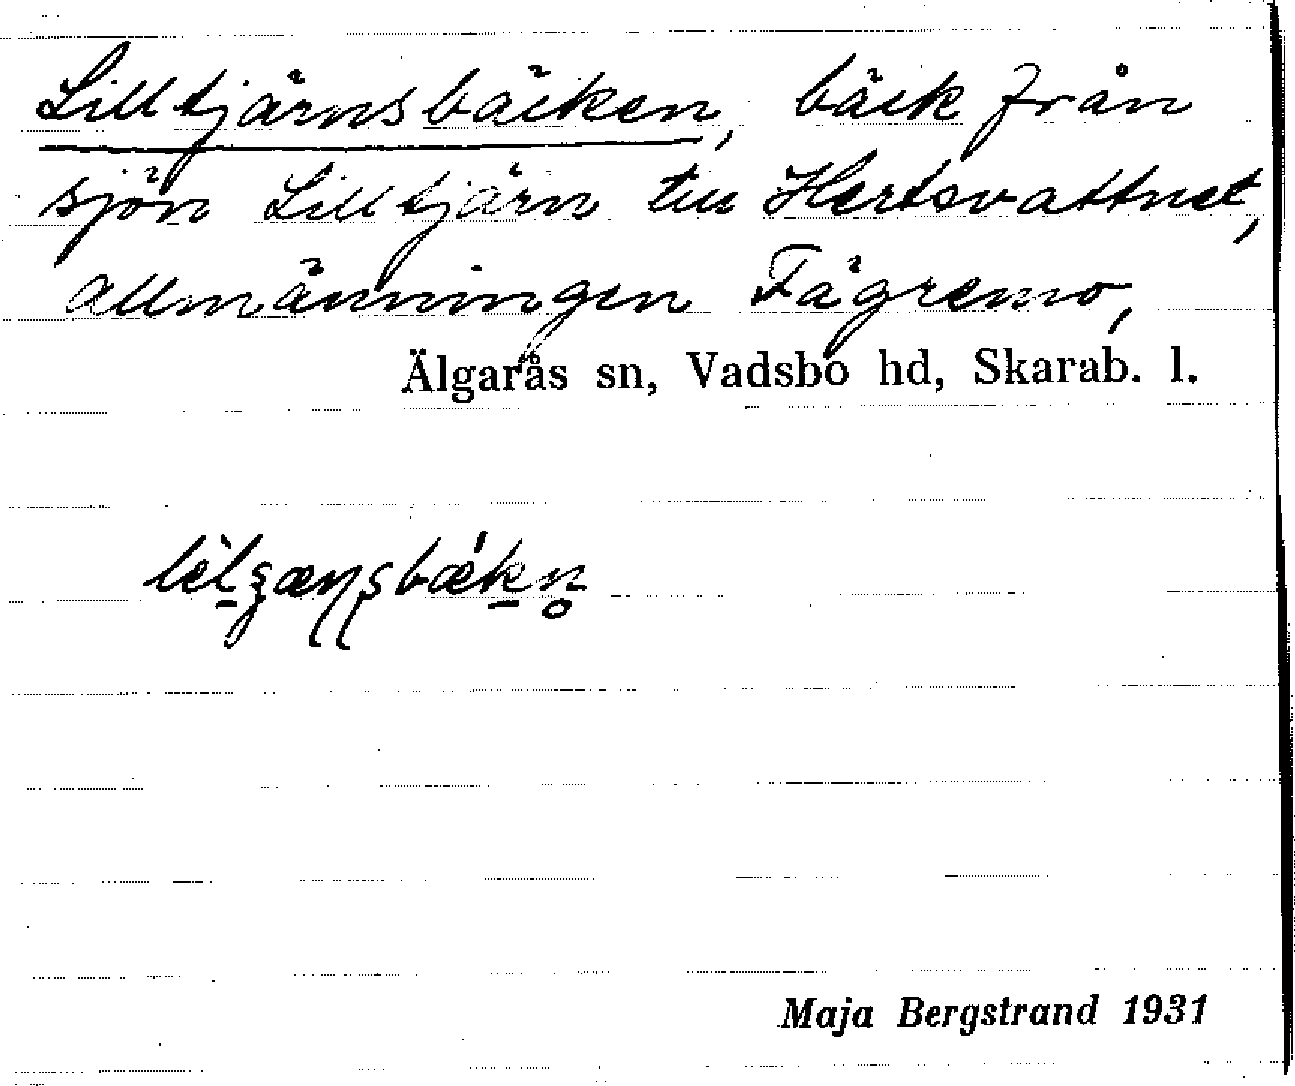 Lilltjärnsbäcken, bäck från
sjön Lilltjärn till Hertsvattnet,
allmänningen Fägremo,
Älgarås sn, Vadsbo hd, Skarab. l.
Maja Bergstrand 1931